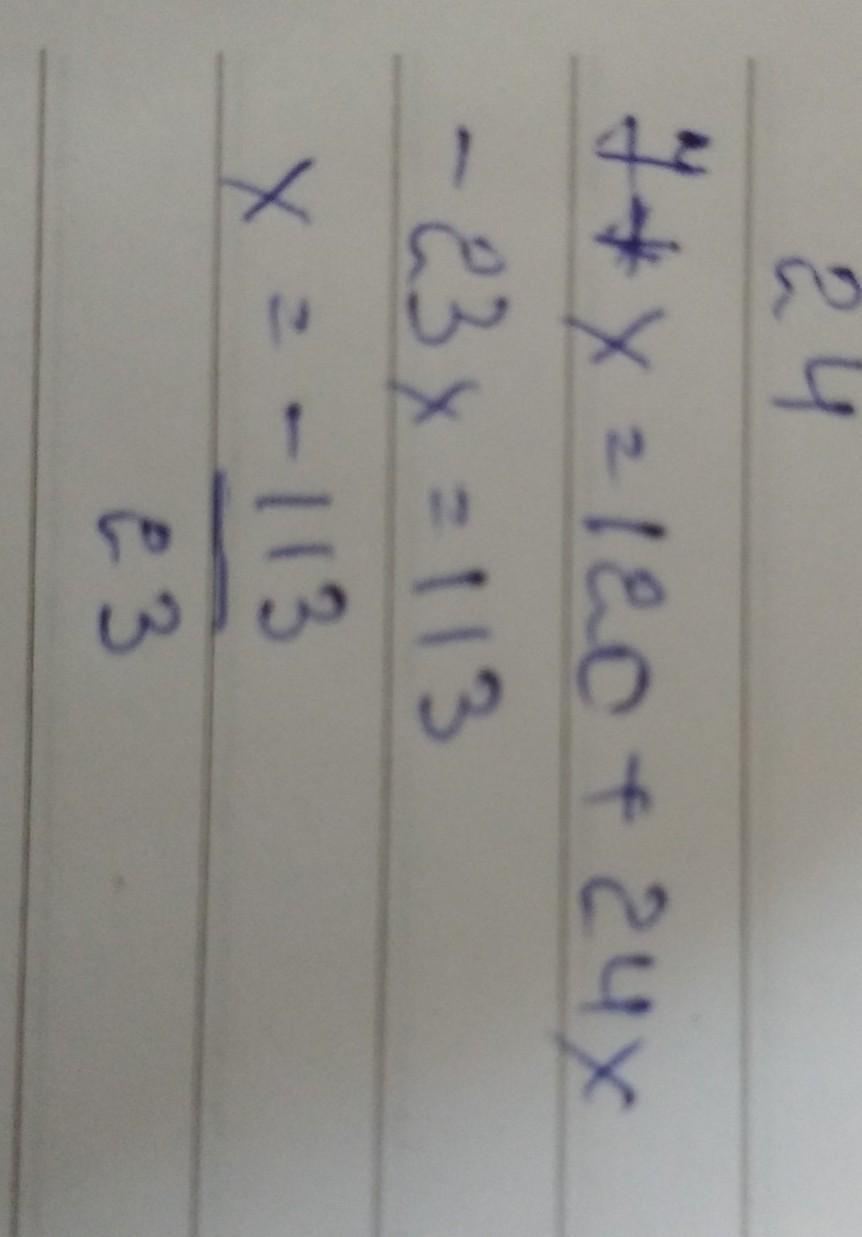 24
7 + x = 120 + 24x
- 23x = 113
x = - 113
23